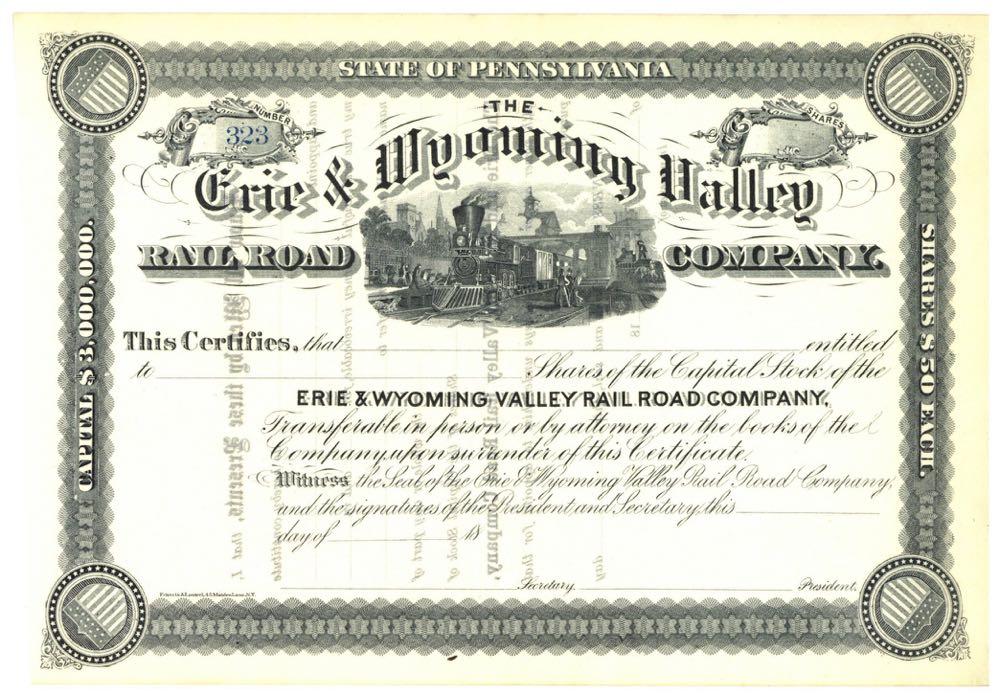 STATE OF PENNSYLVANIA
NUMBER
323
SHARES
THE
Erie & Wyoming Valley
RAIL ROAD COMPANY.
CAPITAL $3,000,000.
SHARES $50 EACH.
This Certifies, that entitled
to Shares of the Capital Stock of the
ERIE & WYOMING VALLEY RAIL ROAD COMPANY,
Transferable in person or by attorney on the books of the
Company upon surrender of this Certificate.
Witness the Seal of the Erie & Wyoming Valley Rail Road Company,
and the signatures of the President and Secretary, this
day of 18
Secretary. President.
Maiden Lane, N.Y.